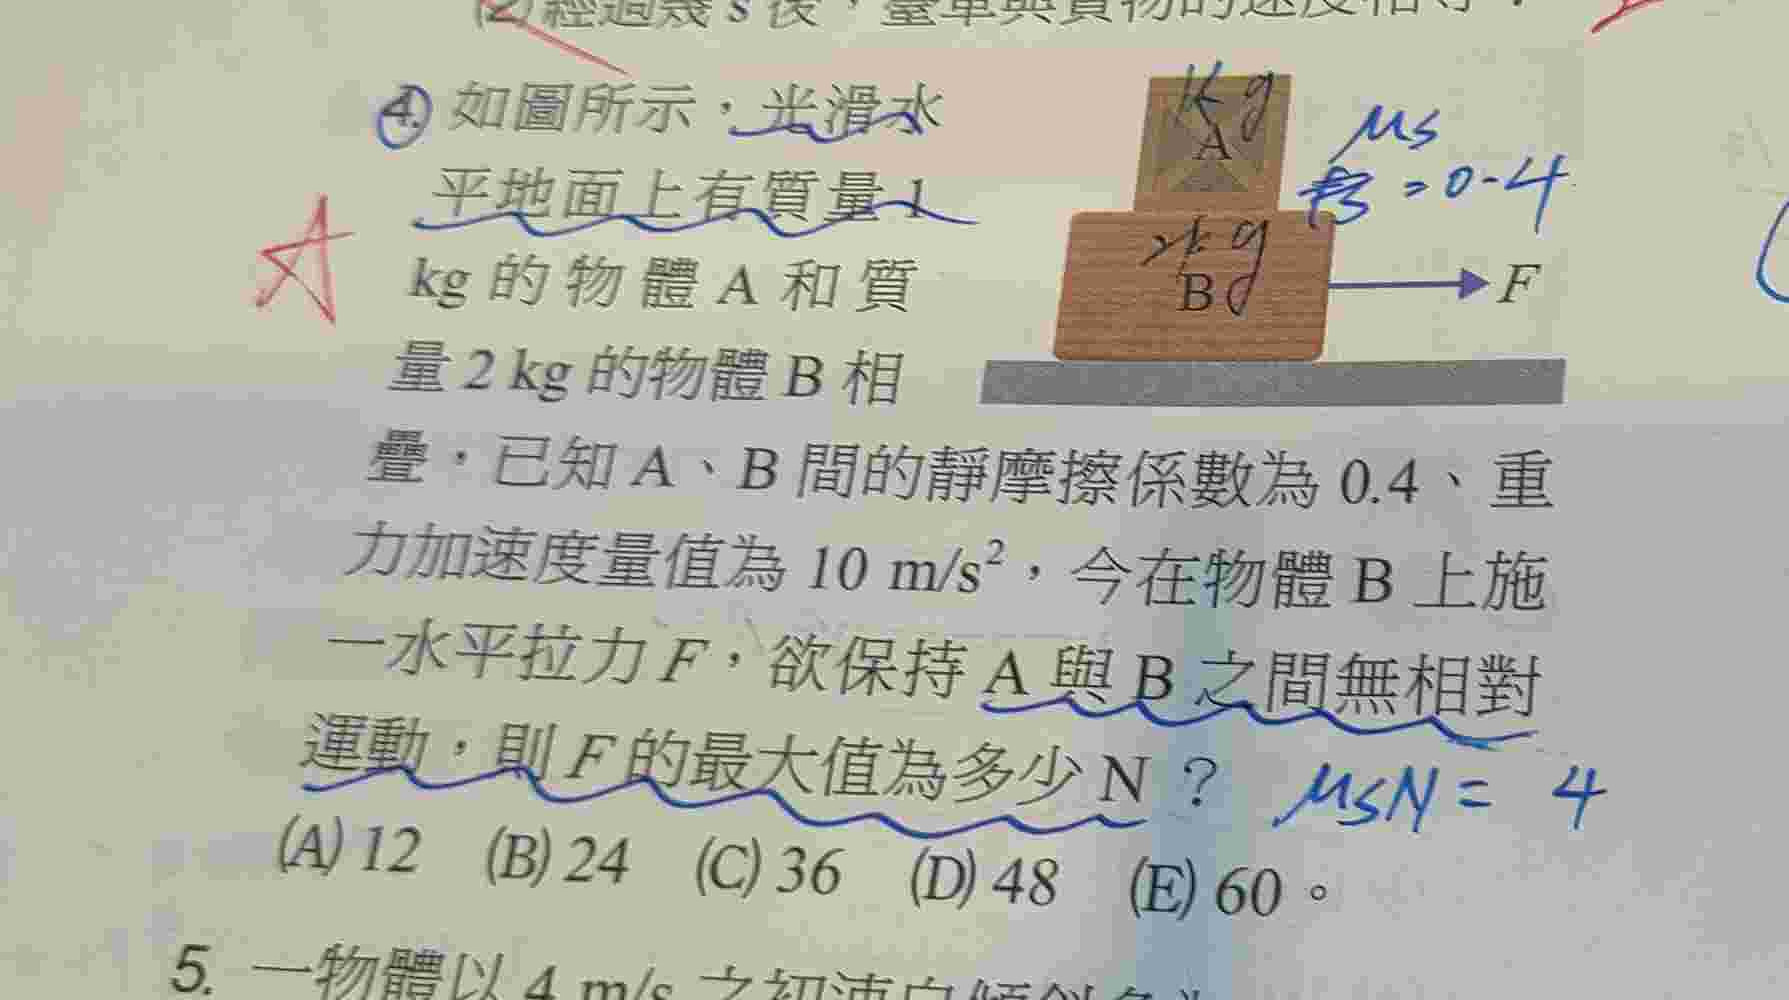 (2)經過幾 s 後，臺車與貨物的速度相等？
4. 如圖所示，光滑水
平地面上有質量 1
kg 的物體 A 和質
量 2 kg 的物體 B 相
疊，已知 A、B 間的靜摩擦係數為 0.4、重
力加速度量值為 10 m/s²，今在物體 B 上施
一水平拉力 F，欲保持 A 與 B 之間無相對
運動，則 F 的最大值為多少 N？ μsN = 4
(A) 12 (B) 24 (C) 36 (D) 48 (E) 60。
A
1kg
A
μs
=0.4
2kg
B
F
5. 一物體以 4 m/s 之初速